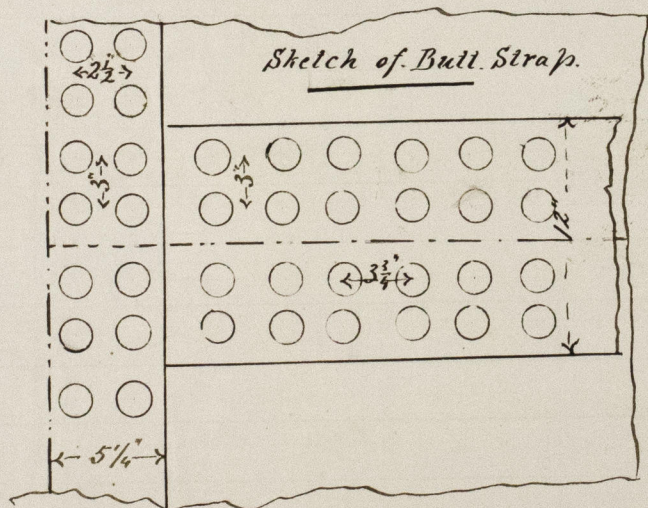 Sketch of Butt Strap.
2½"
3"
3"
12"
3¾"
5¼"